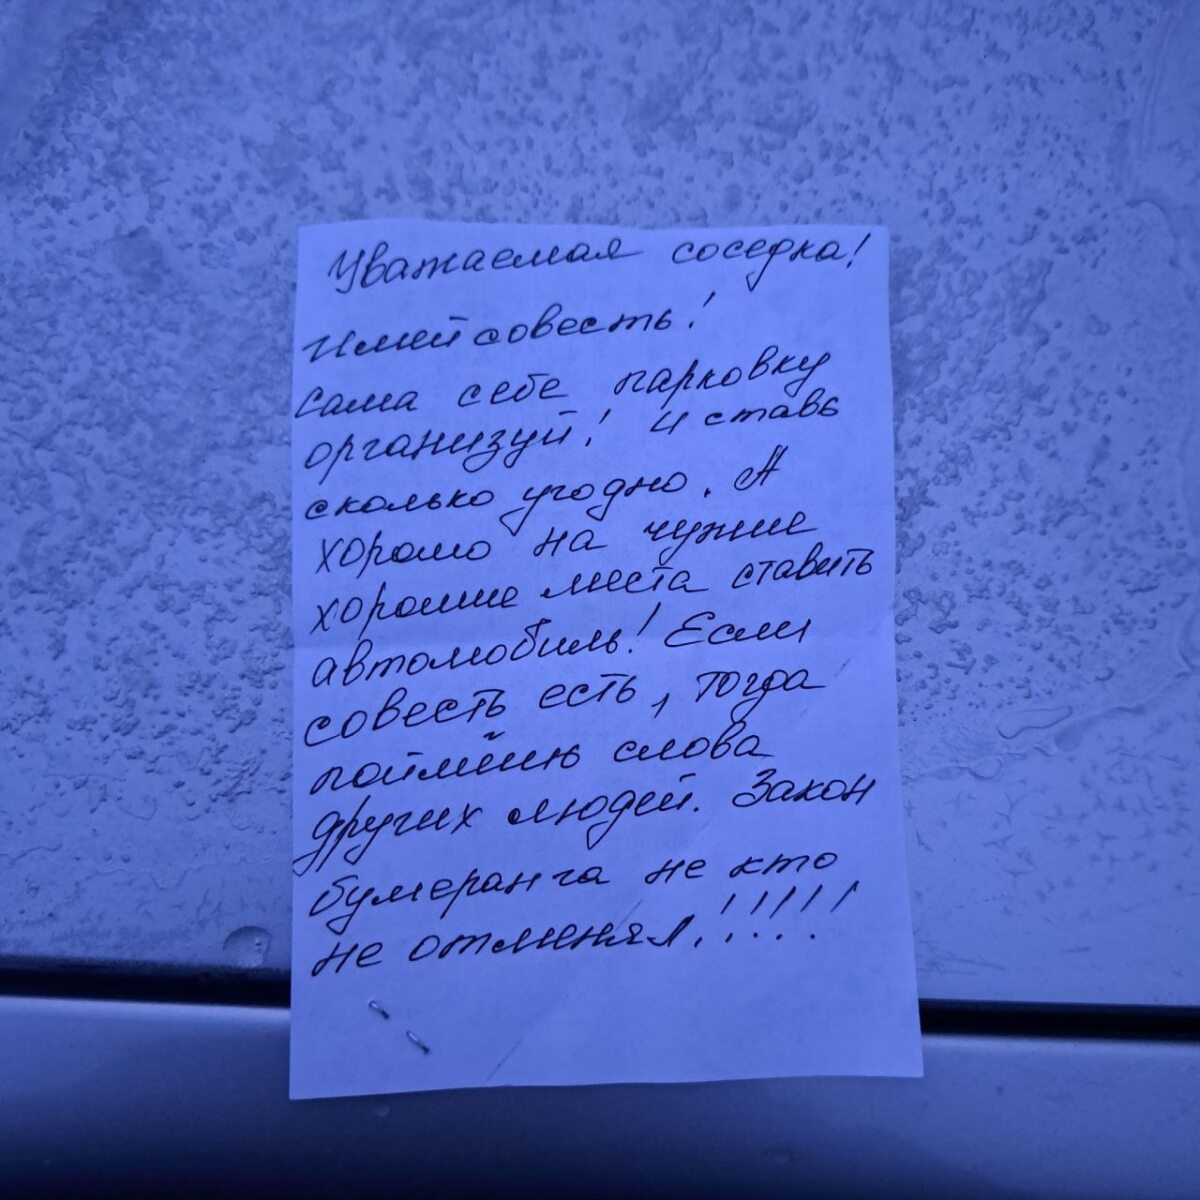 Уважаемая соседка!
Имей совесть!
Сама себе парковку
организуй! И ставь
сколько угодно. А
хорошо на чужие
хорошие места ставить
автомобиль! Если
совесть есть, тогда
поймёшь слова
других людей. Закон
бумеранга не кто
не отменял!!!!!!